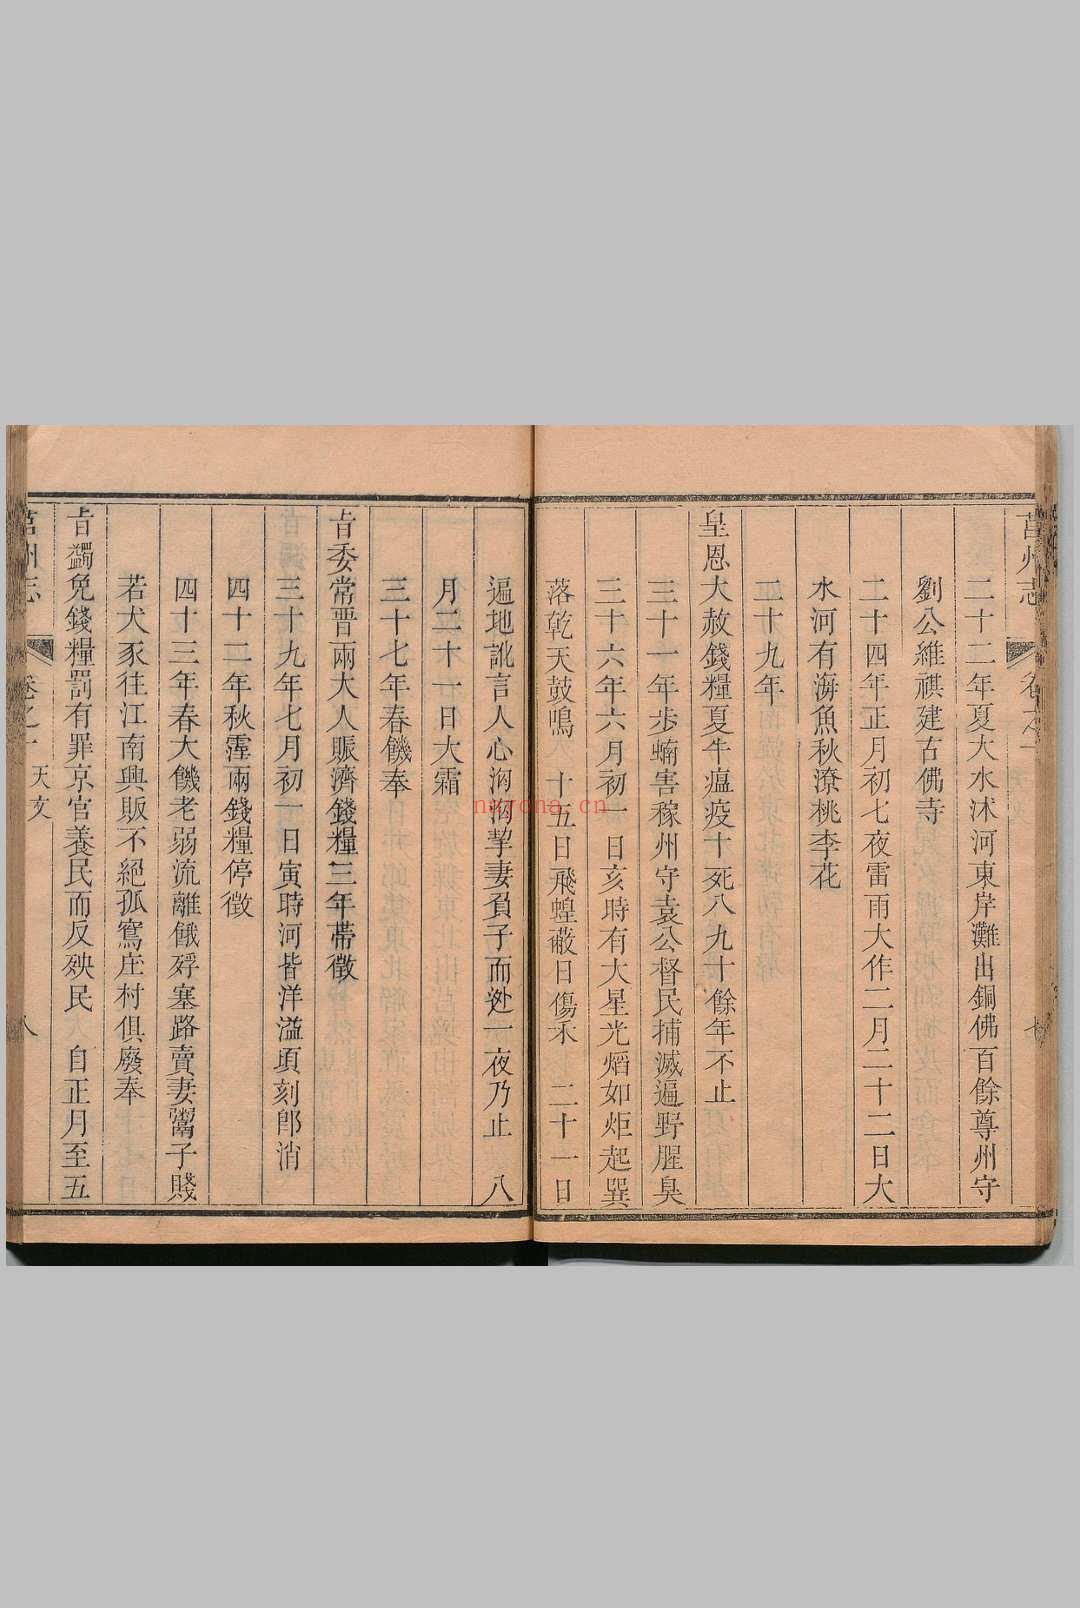 莒州志 卷之一 七
二十二年夏大水沭河東岸灘出銅佛百餘尊州守
劉公維祺建古佛寺
二十四年正月初七夜雷雨大作二月二十二日大
水河有海魚秋潦桃李花
二十九年
皇恩大赦錢糧夏牛瘟疫十死八九十餘年不止
三十一年步蝻害稼州守袁公督民捕滅遍野腥臭
三十六年六月初一日亥時有大星光熖如炬起巽
落乾天鼓鳴 十五日飛蝗蔽日傷禾 二十一日
遍地訛言人心洶洶挈妻負子而迯一夜乃止 八
月二十一日大霜
三十七年春饑奉
旨委常晋兩大人賑濟錢糧三年帶徵
三十九年七月初一日寅時河皆洋溢頃刻卽消
四十二年秋霪雨錢糧停徵
四十三年春大饑老弱流離餓殍塞路賣妻鬻子賤
若犬豕往江南興販不絕孤窵庄村俱廢奉
旨蠲免錢糧罰有罪京官養民而反殃民 自正月至五
莒州志 卷之一 天文 八
nayona.cn